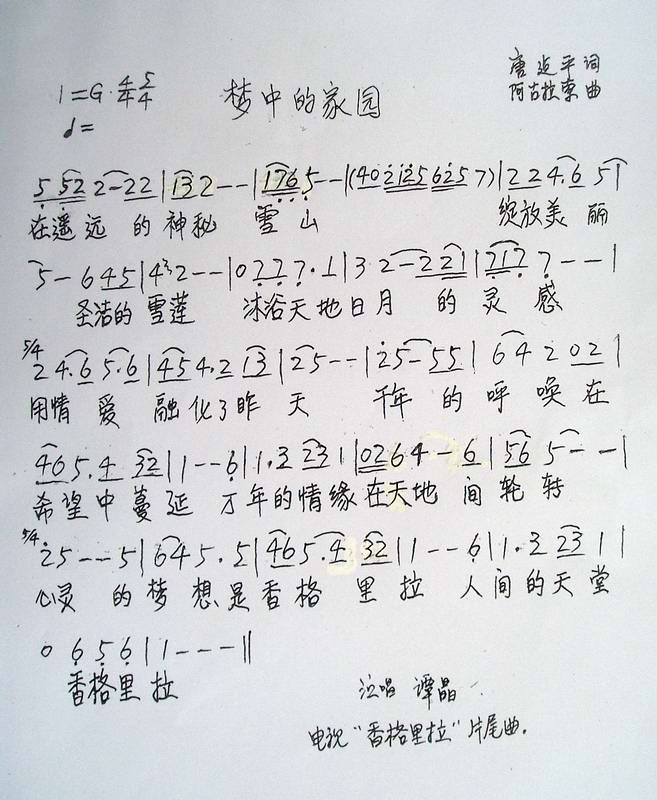 1=G 4/4 5/4 梦中的家园 唐 平 词
♩= 阿古拉泰 曲
5 52 2-22|132--|1765--|(40212562 57)|224.6 51|
在遥远 的神秘 雪山 绽放美丽
5-645|4³2--|0777.1|32-221|7177--|
圣洁的雪莲 沐浴天地日月 的灵感
5/4 24.65.6|454.213|25--|25-55|64202|
用情爱 融化了昨天 千年的呼唤在
465.432|1--6|1.3231|0264-6|565--|
希望中蔓延 万年的情缘在天地间轮转
5/4 25--5|645.5|465.432|1--6|1.3231|
心灵的梦想是香格里拉 人间的天堂
0656|1---‖
香格里拉 演唱 谭晶
电视"香格里拉"片尾曲.